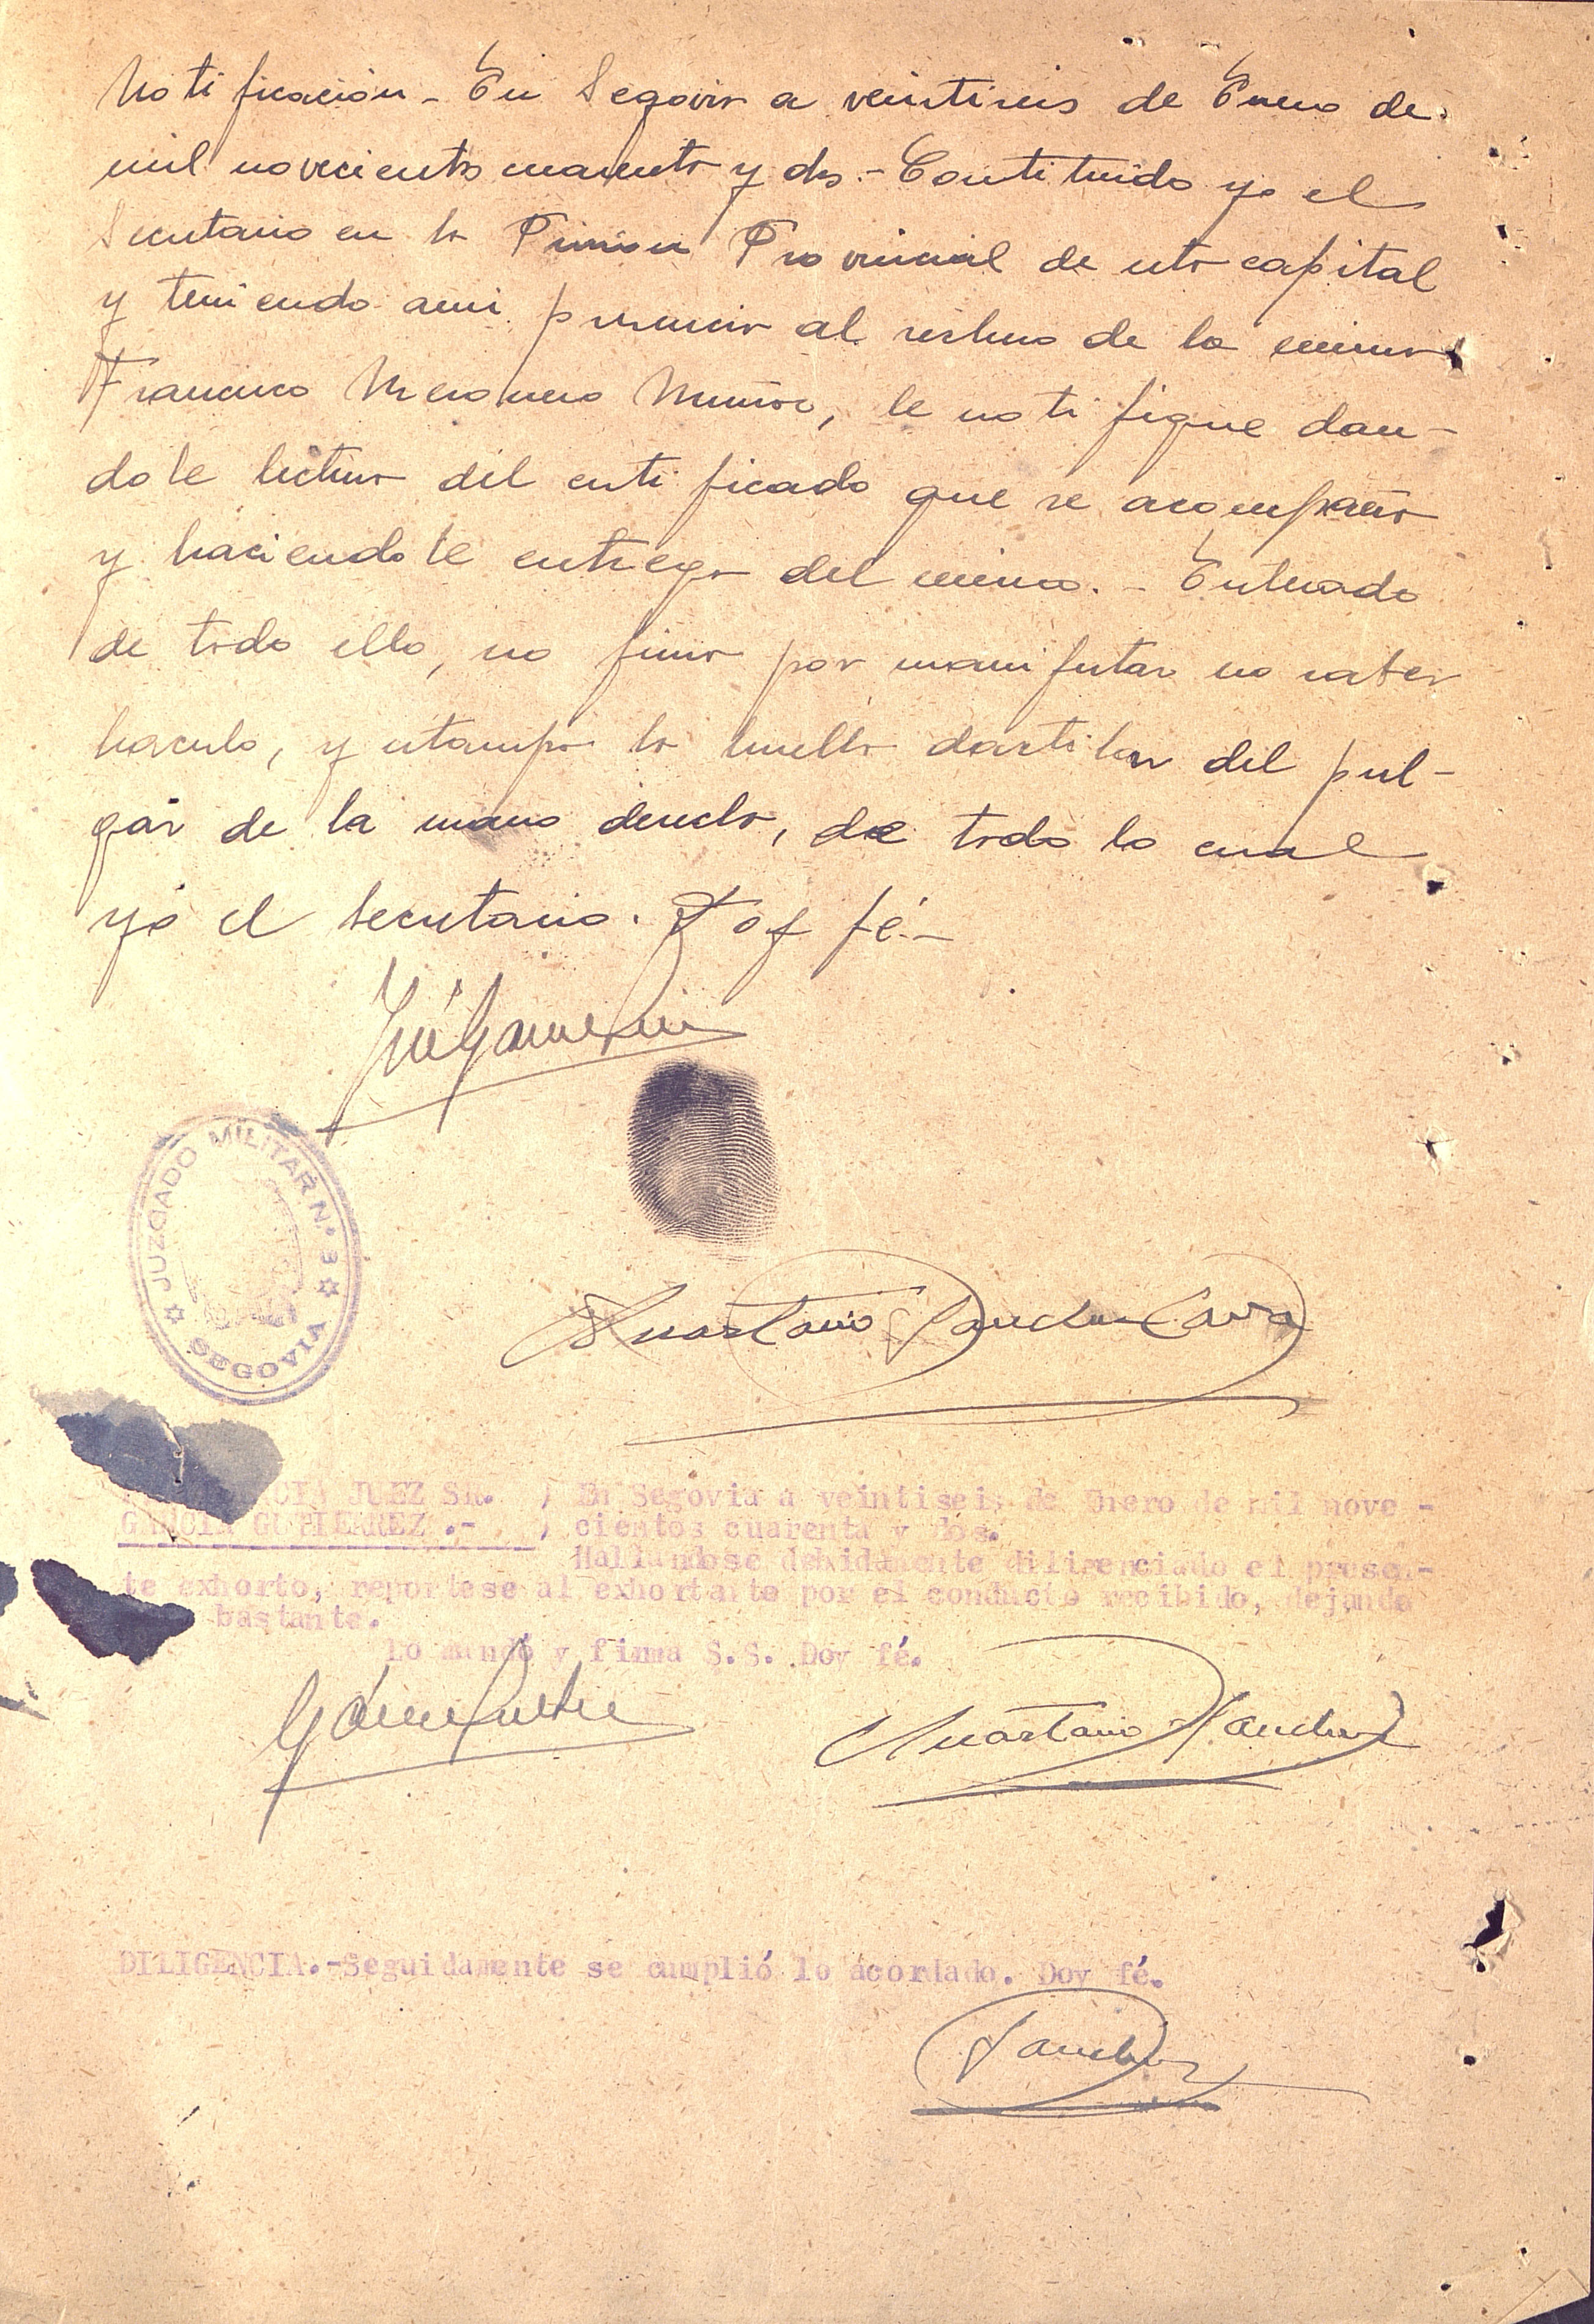 Notificación - En Segovia a veintiseis de Enero de
mil novecientos cuarenta y dos.- Contituido yo el
Secretario en la Prision Provincial de esta capital
y teniendo ami presencia al recluso de la misma
Francisco Mesonero Muñoz, le notifique dan-
dole lectura del certificado que se acompaña
y haciendole entrega del mismo. - Enterado
de todo ello, no firma por manifestar no saber
hacerlo, y estampa la huella dactilar del pul-
gar de la mano derecha, de todo lo cual
yó el secretario. Doy fé.-
JUZGADO MILITAR N.º 3
SEGOVIA
Anastasio Sanchez
JUEZ SR. ) En Segovia a veintiseis de Enero de mil nove -
GARCIA GUTIERREZ .- ) cientos cuarenta y dos.
Hallandose debidamente diligenciado el presen-
te exhorto, reportese al exhortante por el conducto recibido, dejando
bastante.
Lo mandó y firma S.S. Doy fé.
Anastasio Sanchez
DILIGENCIA.-Seguidamente se cumplió lo acordado. Doy fé.
Sanchez